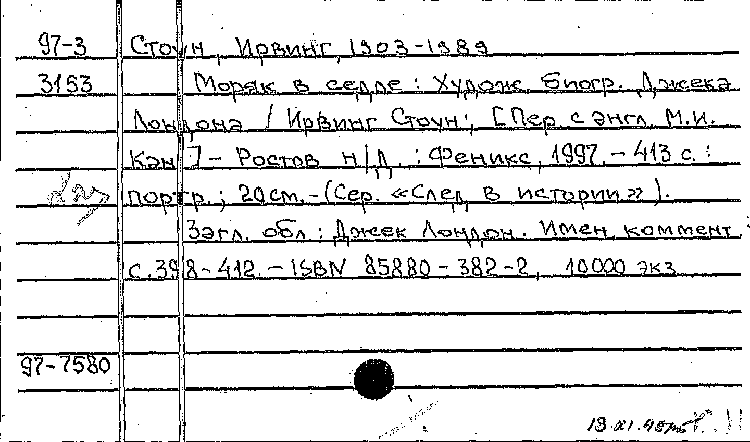 97-3 Стоун, Ирвинг, 1903-1989
3153 Моряк в седле: Худож. биогр. Джека
Лондона / Ирвинг Стоун; [Пер. с англ. М.И.
Кан] - Ростов н/Д.: Феникс, 1997. - 413 с.:
портр.; 20см. - (Сер. «След в истории»).
Загл. обл.: Джек Лондон. Имен. коммент.:
с. 398-412. - ISBN 85880-382-2, 10000 экз
97-7580